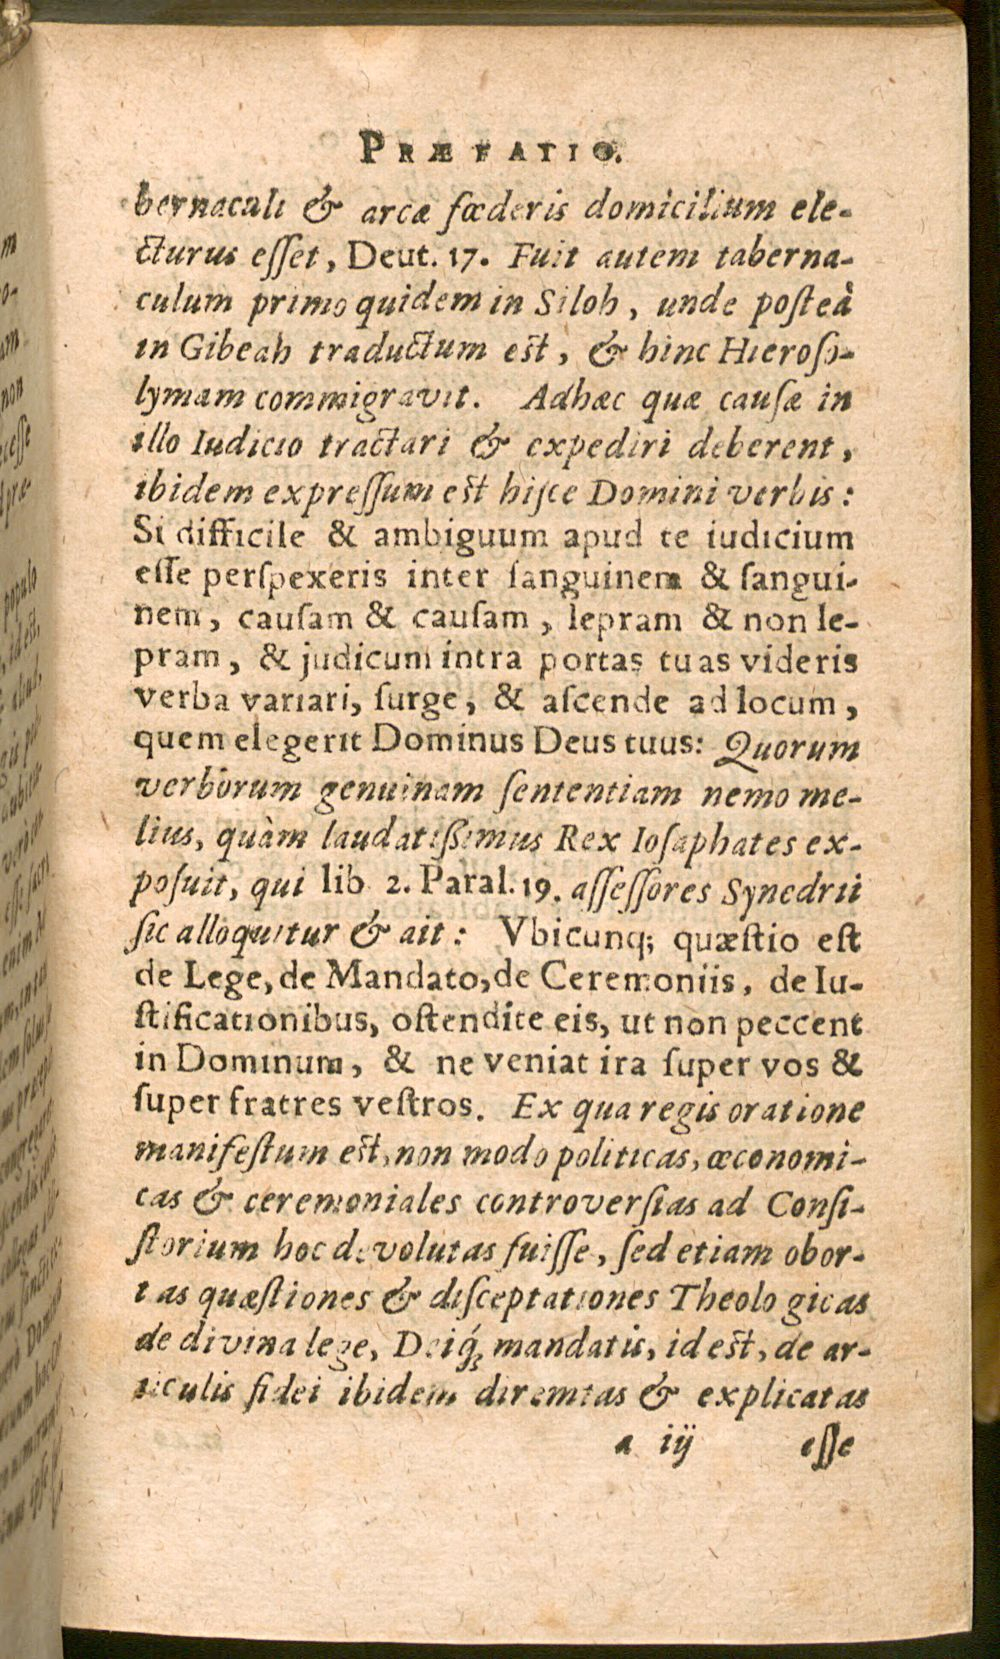 PRÆFATIO.
bernaculi & arcæ fœderis domicilium ele-
cturus eſſet, Deut. 17. Fuit autem taberna-
culum primo quidem in Siloh, unde poſteà
in Gibeah traductum eſt, & hinc Hieroſo-
lymam commigravit. Adhæc quæ cauſæ in
illo Iudicio tractari & expediri deberent,
ibidem expreſſum eſt hiſce Domini verbis:
Si difficile & ambiguum apud te iudicium
eſſe perſpexeris inter ſanguinem & ſangui-
nem, cauſam & cauſam, lepram & non le-
pram, & judicum intra portas tuas videris
verba variari, ſurge, & aſcende ad locum,
quem elegerit Dominus Deus tuus: Quorum
verborum genuinam ſententiam nemo me-
lius, quàm laudatißimus Rex Ioſaphates ex-
poſuit, qui lib 2. Paral. 19. aſſeſſores Synedrii
ſic alloquitur & ait: Vbicunq; quæſtio eſt
de Lege, de Mandato, de Ceremoniis, de Iu-
ſtificationibus, oſtendite eis, ut non peccent
in Dominum, & ne veniat ira ſuper vos &
ſuper fratres veſtros. Ex qua regis oratione
manifeſtum eſt, non modo politicas, œconomi-
cas & ceremoniales controverſias ad Conſi-
ſtorium hoc devolutas fuiſſe, ſed etiam obor-
tas quæſtiones & diſceptationes Theologicas
de divina lege, Deiq́; mandatis, id eſt, de ar-
ticulis fidei ibidem diremtas & explicatas
a iij eſſe